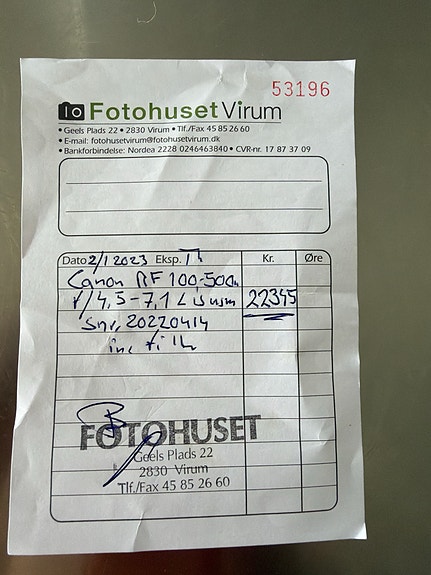 53196
Fotohuset Virum
• Geels Plads 22 • 2830 Virum • Tlf/Fax 45 85 26 60
• E-mail: fotohusetvirum@fotohusetvirum.dk
• Bankforbindelse: Nordea 2228 0246463840 • CVR-nr. 17 87 37 09
Dato 2/1 2023 Eksp. Kr. Øre
Canon RF 100-500
f/4,5-7,1 L is usm 22345
Snr. 20220414
inc
FOTOHUSET
Geels Plads 22
2830 Virum
Tlf./Fax 45 85 26 60